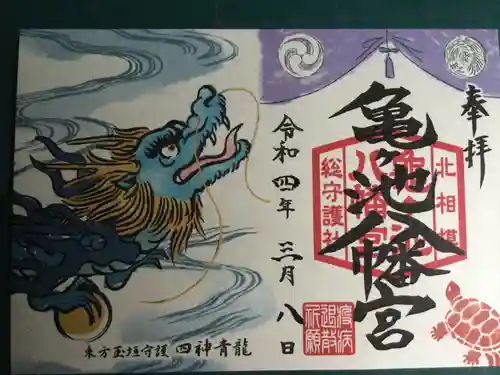 奉拝
亀ヶ池八幡宮
北相模
総守護社
令和四年 三月 八日
疫病
退散
祈願
東方玉垣守護 四神青龍